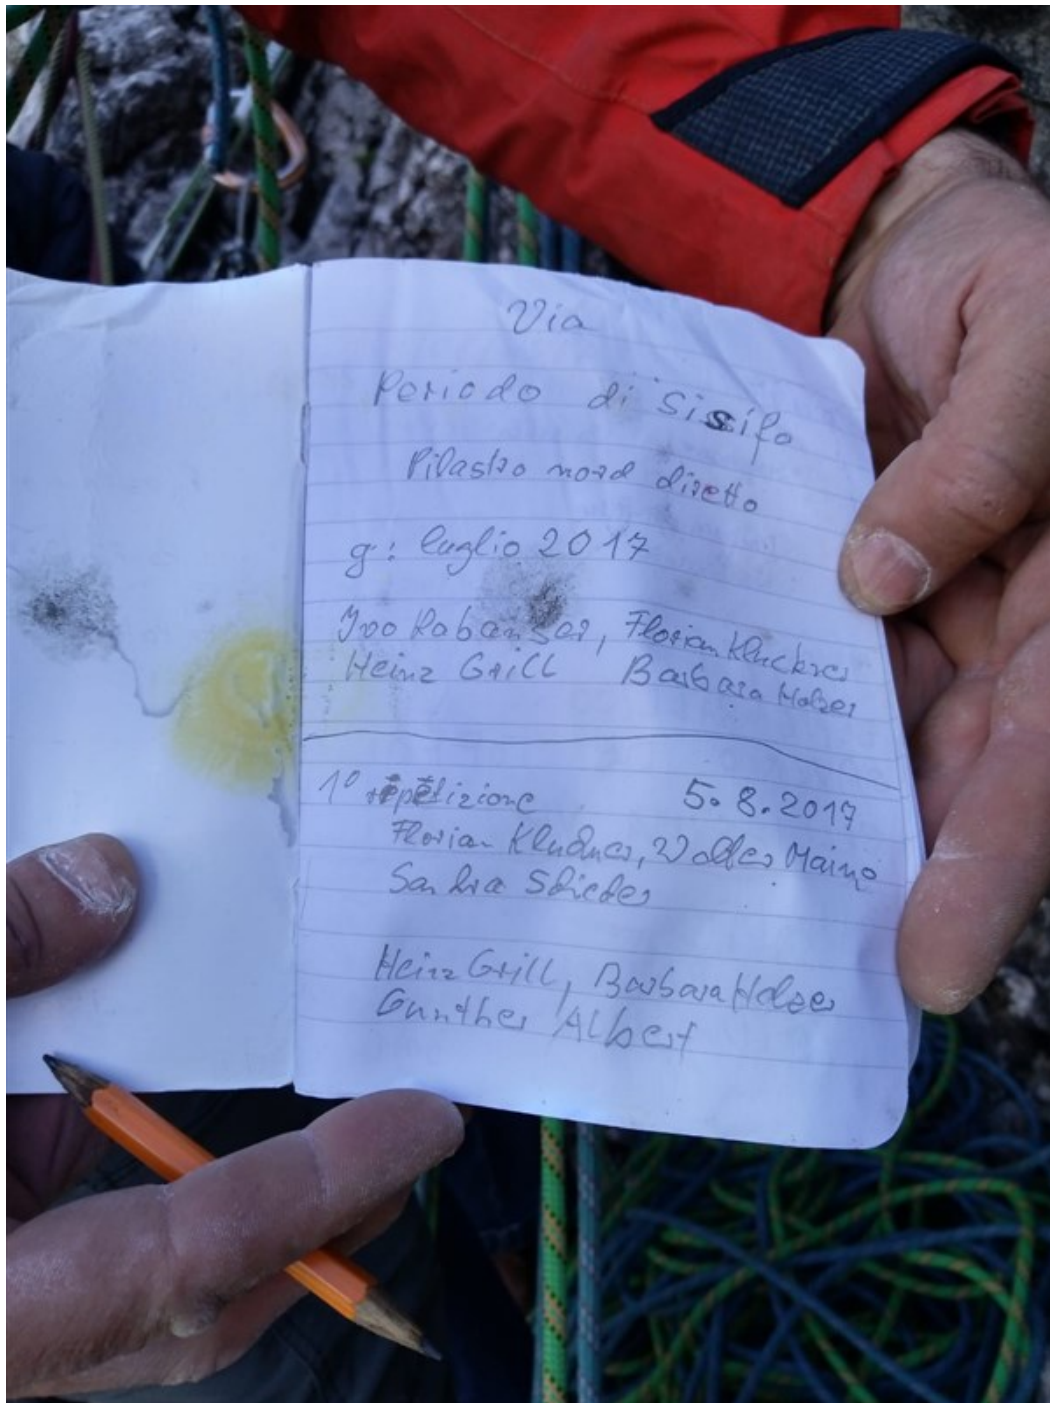 Via
Periodo di Sisifo
Pilastro nord diretto
g: luglio 2017
Ivo Rabanser, Florian Kluckner
Heinz Grill Barbara Holzer
1° repetizione 5.8.2017
Florian Kluckner, Walter Maino
Sandra Schieder
Heinz Grill, Barbara Holzer
Gunther Albert